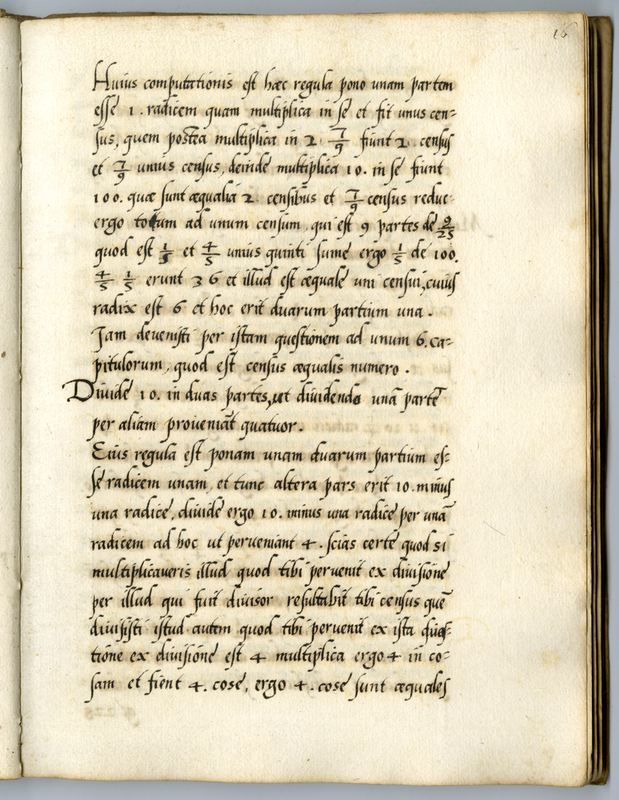 16
Huius computationis est hæc regula pono unam partem
esse 1. radicem quam multiplica in se et fit unus cen-
sus, quem postea multiplica in 2 7/9 fiunt 2. census
et 7/9 unius census, deinde multiplica 10. in se fiunt
100. quæ sunt æqualia 2 censibus et 7/9 census reduc
ergo totum ad unum censum, qui est 9 partes de 9/25
quod est 1/5 et 4/5 unius quinti sume ergo 1/5 de 100.
4/5 1/5 erunt 36 et illud est æquale uni censui, cuius
radix est 6 et hoc erit duarum partium una.
Jam devenisti per istam questionem ad unum 6. ca-
pitulorum, quod est census æqualis numero.
Divide 10. in duas partes, ut dividendo unã partẽ
per aliam proveniãt quatuor.
Eius regula est ponam unam duarum partium es-
se radicem unam, et tunc altera pars erit 10. minus
una radice, divide ergo 10. minus una radice per unã
radicem ad hoc ut perveniant 4. scias certe quod si
multiplicaveris illud quod tibi pervenit ex divisione
per illud qui fuit divisor resultabit tibi census quẽ
divisisti istud autem quod tibi pervenit ex ista
tione ex divisione est 4 multiplica ergo 4 in co-
sam et fient 4. cose, ergo 4. cose sunt æquales